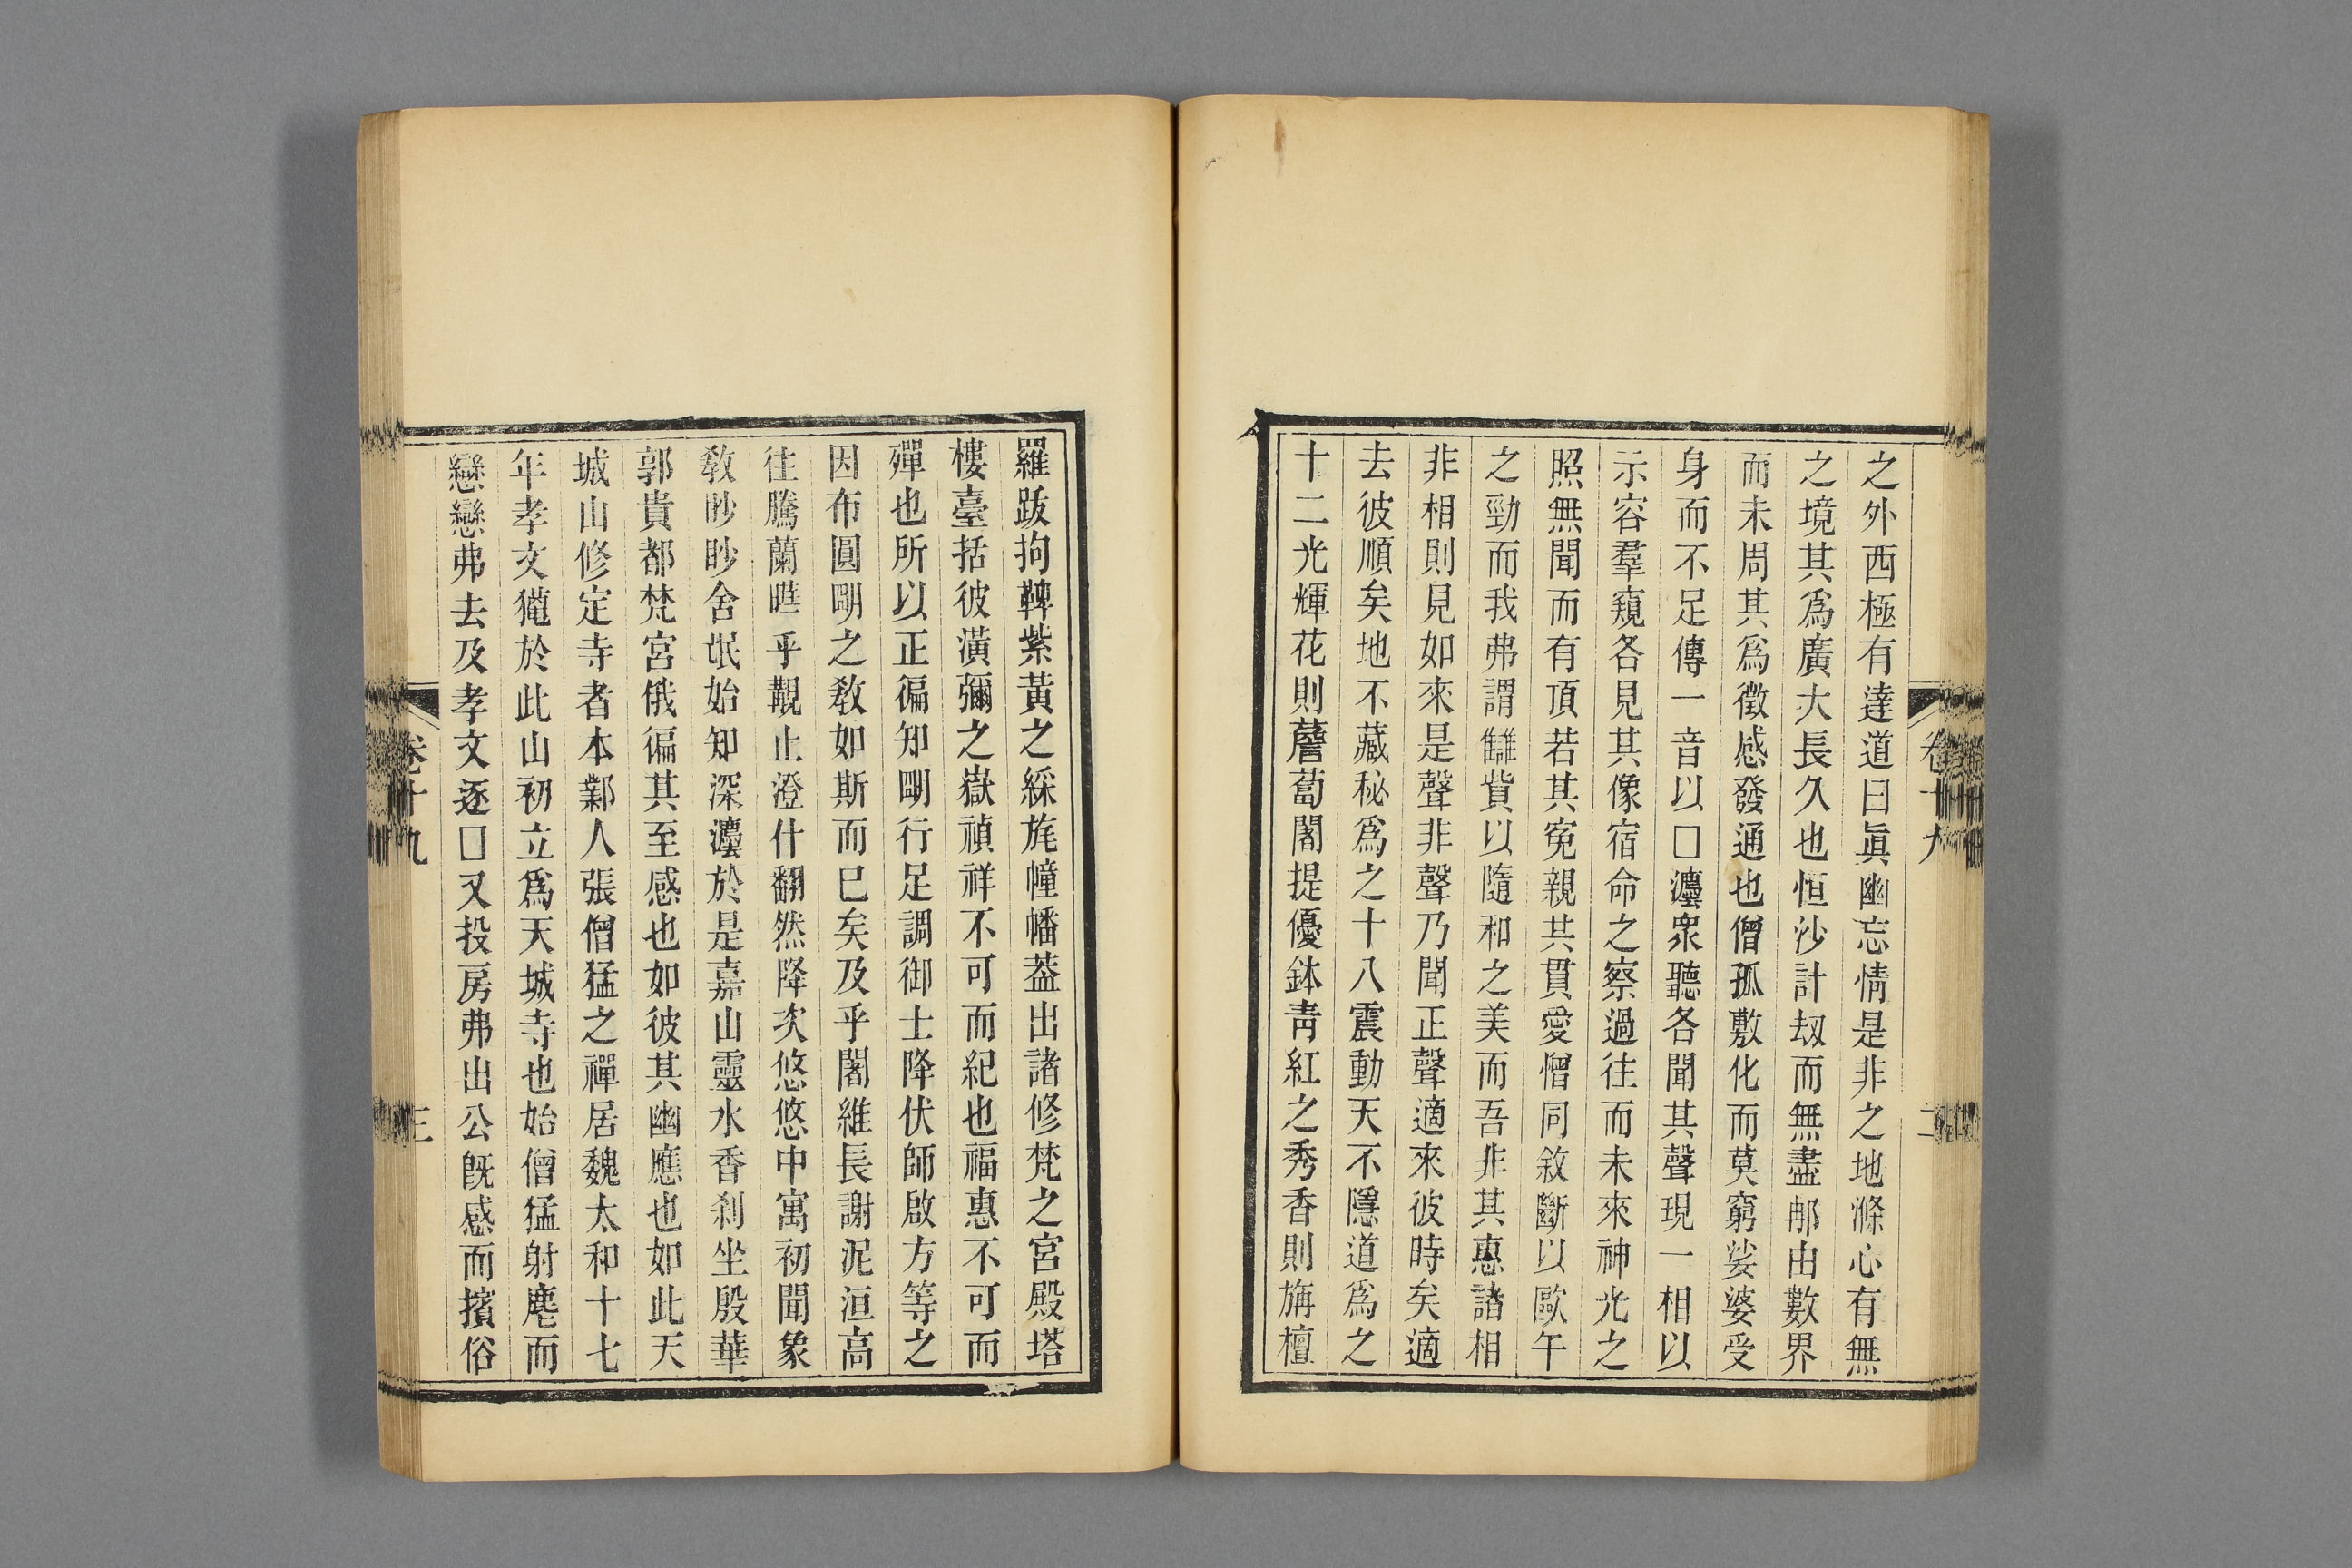 之外西極有達道曰眞幽忘情是非之地滌心有無
之境其爲廣大長久也恒沙計刼而無盡那由數界
而未周其爲徵感發通也僧孤敷化而莫窮娑婆受
身而不足傳一音以□灋衆聽各聞其聲現一相以
示容羣窺各見其像宿命之察過往而未來神光之
照無聞而有頂若其寃親其貫愛憎同敘斷以歐午
之勁而我弗謂讎貲以隨和之美而吾非其惠諸相
非相則見如來是聲非聲乃聞正聲適來彼時矣適
去彼順矣地不藏秘爲之十八震動天不隱道爲之
十二光輝花則薝蔔闍提優鉢靑紅之秀香則旃檀
羅跋拘鞞紫黃之綵旄幢幡葢出諸修梵之宮殿塔
樓臺括彼潢彌之嶽禎祥不可而紀也福惠不可而
殫也所以正徧知朙行足調御士降伏師啟方等之
因布圓朙之敎如斯而已矣及乎闍維長謝泥洹高
往騰蘭暀乎覯止澄什翻然降次悠悠中寓初聞象
敎眇眇含氓始知深灋於是嘉山靈水香刹坐殷華
郭貴都梵宮俄徧其至感也如彼其幽應也如此天
城山修定寺者本鄴人張僧猛之禪居魏太和十七
年孝文獵於此山初立爲天城寺也始僧猛射麀而
戀戀弗去及孝文逐□又投房弗出公旣感而擯俗
卷十九
二
卷十九
三